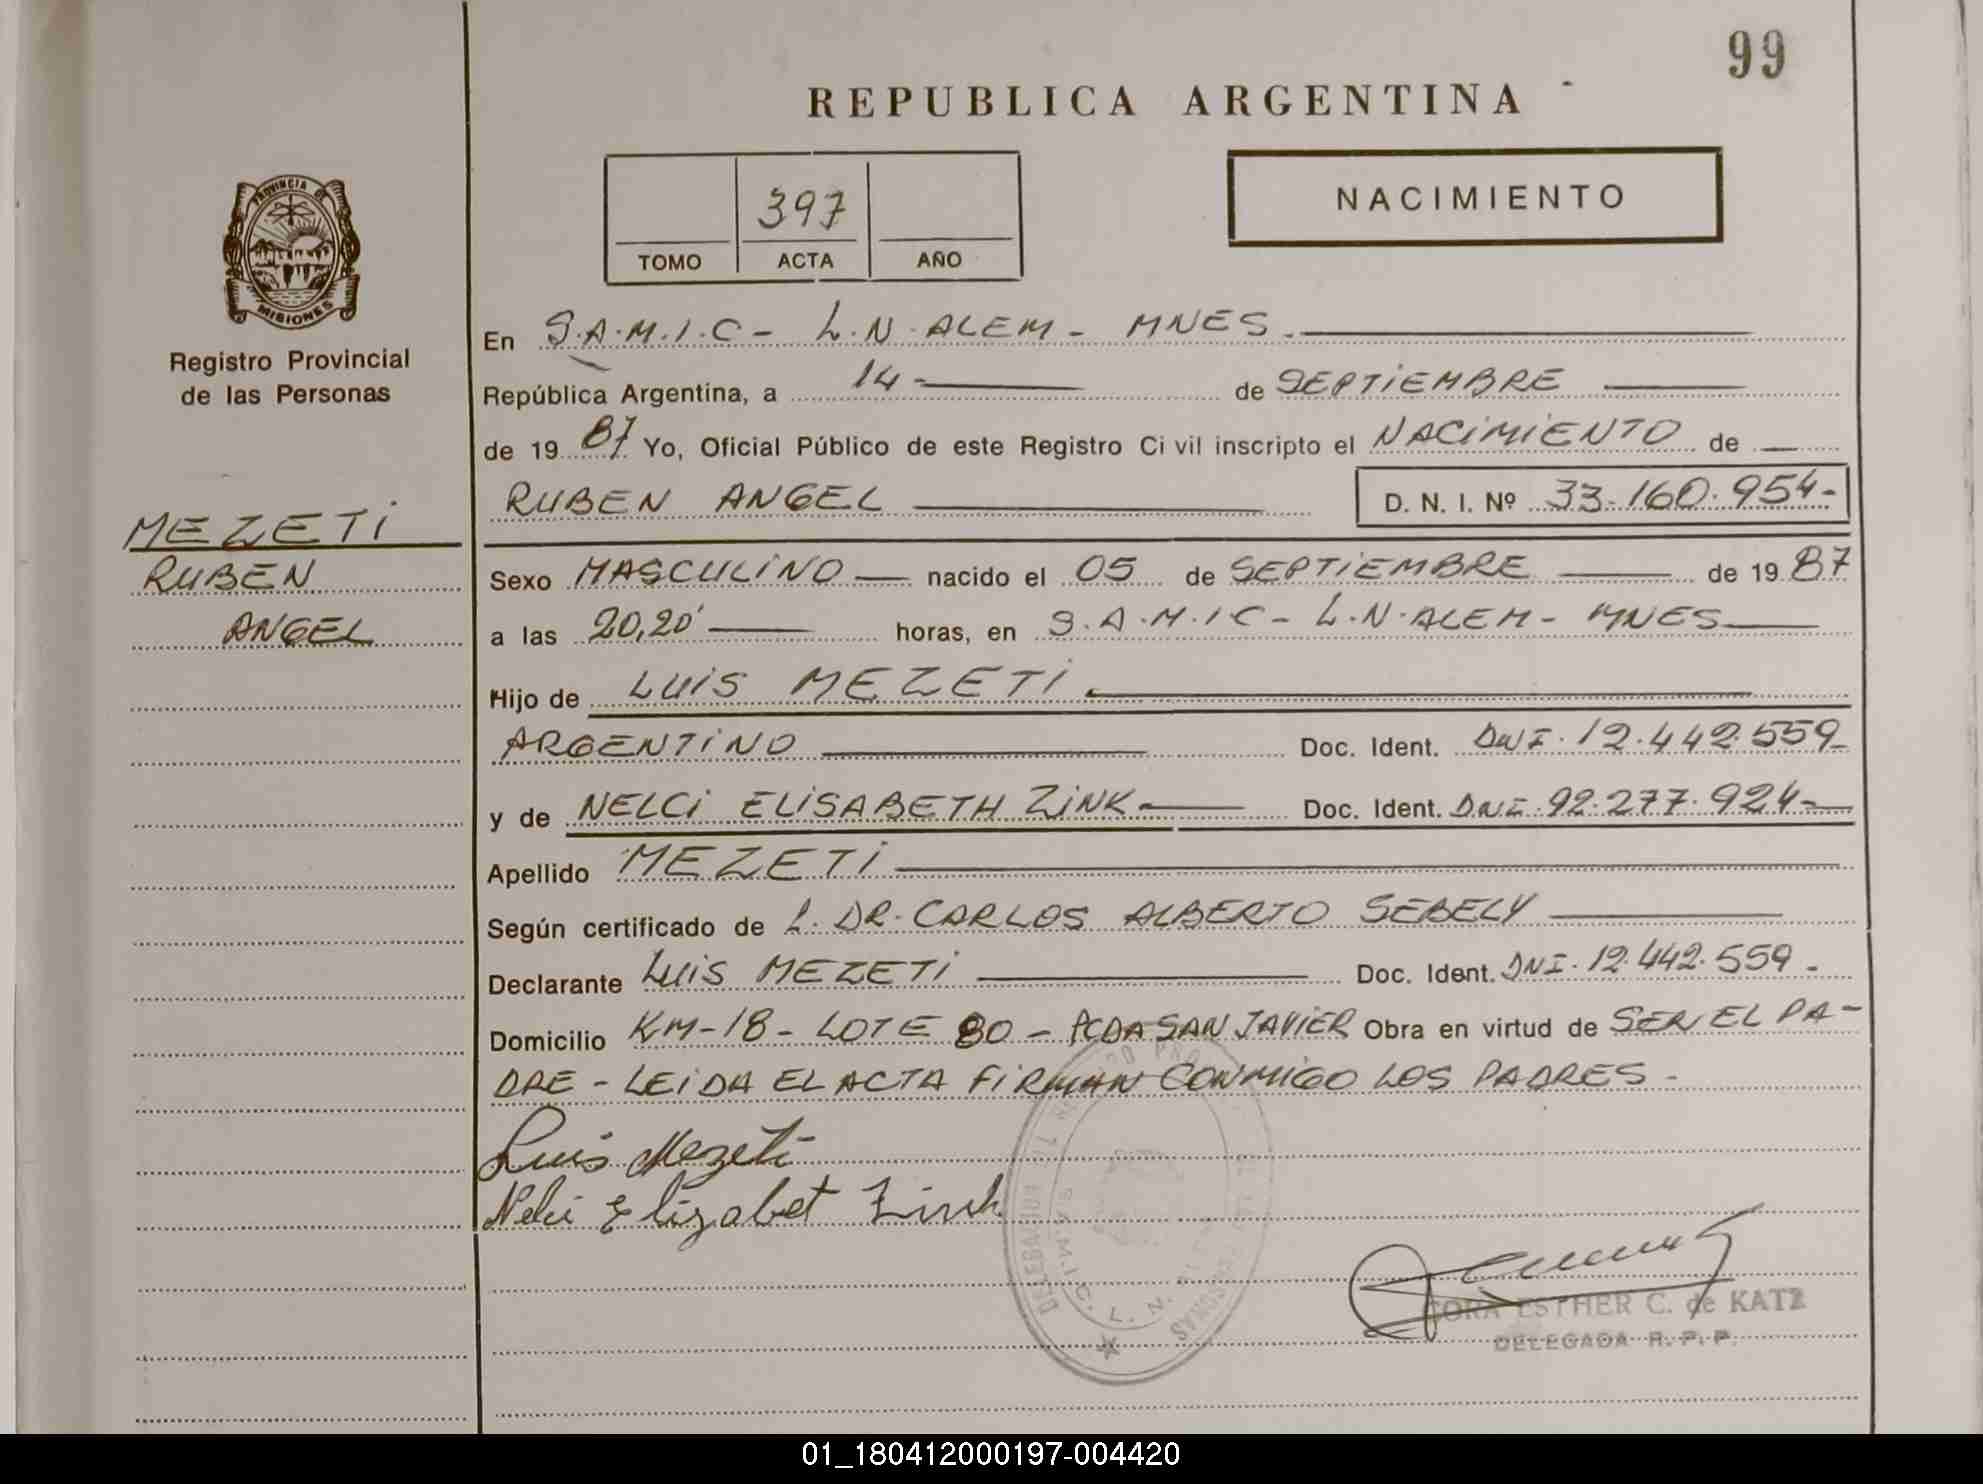 99
REPUBLICA ARGENTINA
397
TOMO ACTA AÑO
NACIMIENTO
PROVINCIA DE
MISIONES
Registro Provincial
de las Personas
MEZETI
RUBEN
ANGEL
En S.A.M.I.C - L.N. ALEM - MNES.
República Argentina, a 14 - de SEPTIEMBRE
de 19 87 Yo, Oficial Público de este Registro Civil inscripto el NACIMIENTO de
RUBEN ANGEL D. N. I. Nº 33.160.954-
Sexo MASCULINO nacido el 05 de SEPTIEMBRE de 19 87
a las 20,20' horas, en S.A.M.I.C - L.N. ALEM - MNES
Hijo de LUIS MEZETI
ARGENTINO Doc. Ident. DNI. 12.442.559-
y de NELCI ELISABETH ZINK- Doc. Ident. DNI. 92.277.924-
Apellido MEZETI
Según certificado de L. DR. CARLOS ALBERTO SEBELY
Declarante LUIS MEZETI Doc. Ident. DNI. 12.442.559.
Domicilio KM-18- LOTE 80 - PCDA SAN JAVIER Obra en virtud de SER EL PA-
DRE - LEIDA EL ACTA FIRMAN CONMIGO LOS PADRES -
Luis Mezeti
Nelci Elizabet Zink
DELEGACION
S.A.M.I.C. L. N. ALEM
PERSONAS
CORA ESTHER C. de KATZ
DELEGADA R. P. P.
01_180412000197-004420